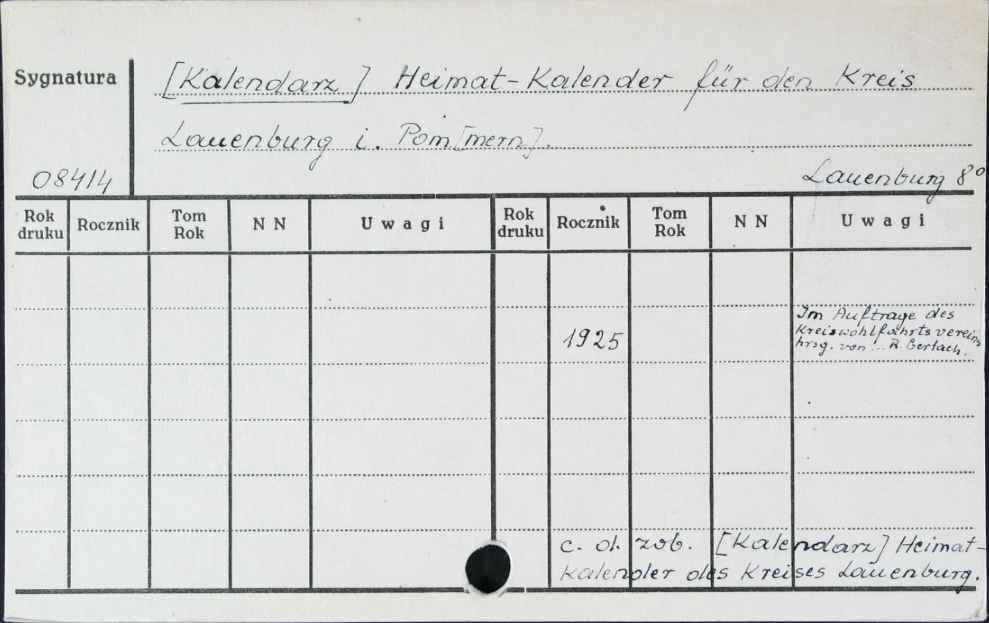 Sygnatura
[Kalendarz] Heimat-Kalender für den Kreis
Lauenburg i. Pom[mern].
08414
Lauenburg 8°
Rok druku Rocznik Tom Rok N N Uwagi Rok druku Rocznik Tom Rok N N Uwagi
Im Auftrage des
1925 Kreiswohlfahrtsverein
hrsg. von ... R. Gerlach.
c. d. zob. [Kalendarz] Heimat-
kalender des Kreises Lauenburg.